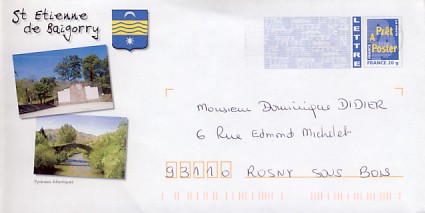 St Etienne
de Baigorry
LETTRE
Prêt
à
Poster
FRANCE 20 g
Monsieur Dominique DIDIER
6 Rue Edmond Michelet
93110 ROSNY SOUS BOIS
Pyrénées Atlantiques